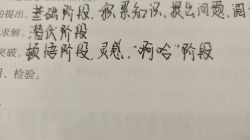 的提出。基础阶段，积累知识，提出问题，调
求解。潜伏阶段
突破。顿悟阶段，灵感，“啊哈”阶段
，检验。